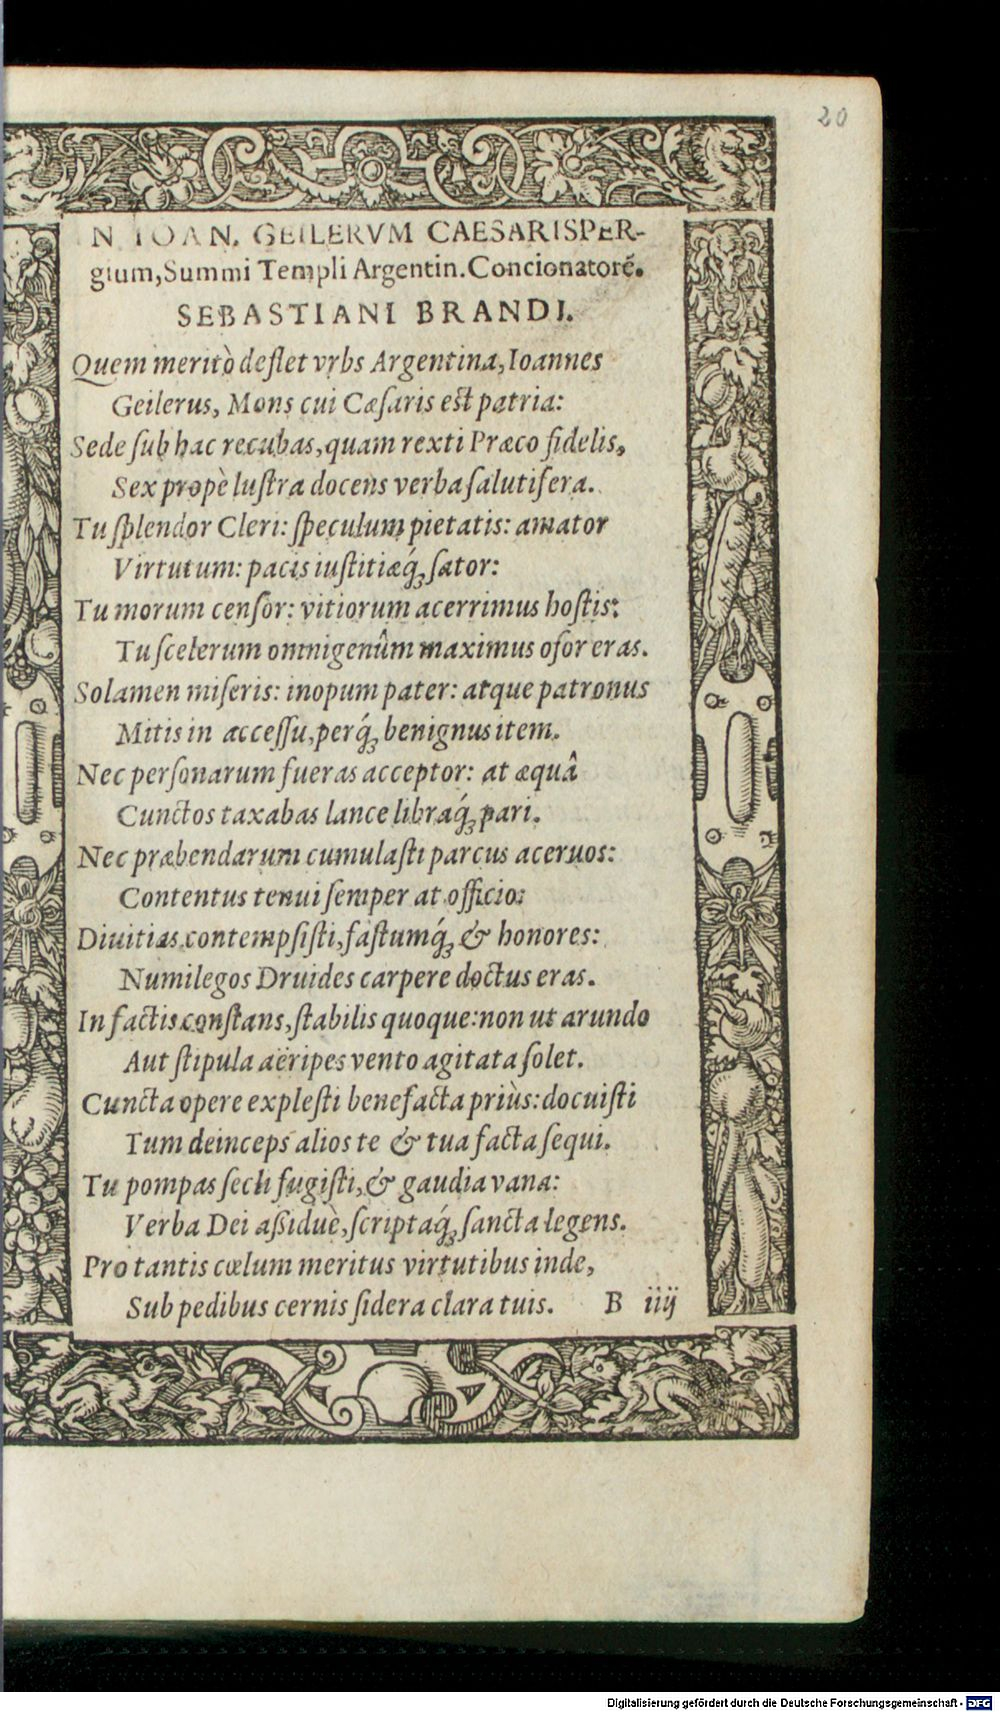 20
N IOAN. GEILERVM CAESARISPER-
gium, Summi Templi Argentin. Concionatorẽ.
SEBASTIANI BRANDI.
Quem meritò deflet vrbs Argentina, Ioannes
Geilerus, Mons cui Cæſaris est patria:
Sede ſub hac recubas, quam rexti Præco fidelis,
Sex propè luſtra docens verba ſalutifera.
Tu ſplendor Cleri: ſpeculum pietatis: amator
Virtutum: pacis iuſtitiæq́; ſator:
Tu morum cenſor: vitiorum acerrimus hoſtis:
Tu ſcelerum omnigenûm maximus oſor eras.
Solamen miſeris: inopum pater: atque patronus
Mitis in acceſſu, perq́; benignus item.
Nec perſonarum fueras acceptor: at æquâ
Cunctos taxabas lance libraq́; pari.
Nec præbendarum cumulaſti parcus aceruos:
Contentus tenui ſemper at officio:
Diuitias contempſiſti, faſtumq́; & honores:
Numilegos Druides carpere doctus eras.
In factis conſtans, ſtabilis quoque: non ut arundo
Aut ſtipula aëripes vento agitata ſolet.
Cuncta opere expleſti benefacta priùs: docuiſti
Tum deinceps alios te & tua facta ſequi.
Tu pompas ſecli fugiſti, & gaudia vana:
Verba Dei aßiduè, ſcriptaq́; ſancta legens.
Pro tantis cœlum meritus virtutibus inde,
Sub pedibus cernis ſidera clara tuis. B iiij
Digitalisierung gefördert durch die Deutsche Forschungsgemeinschaft - DFG